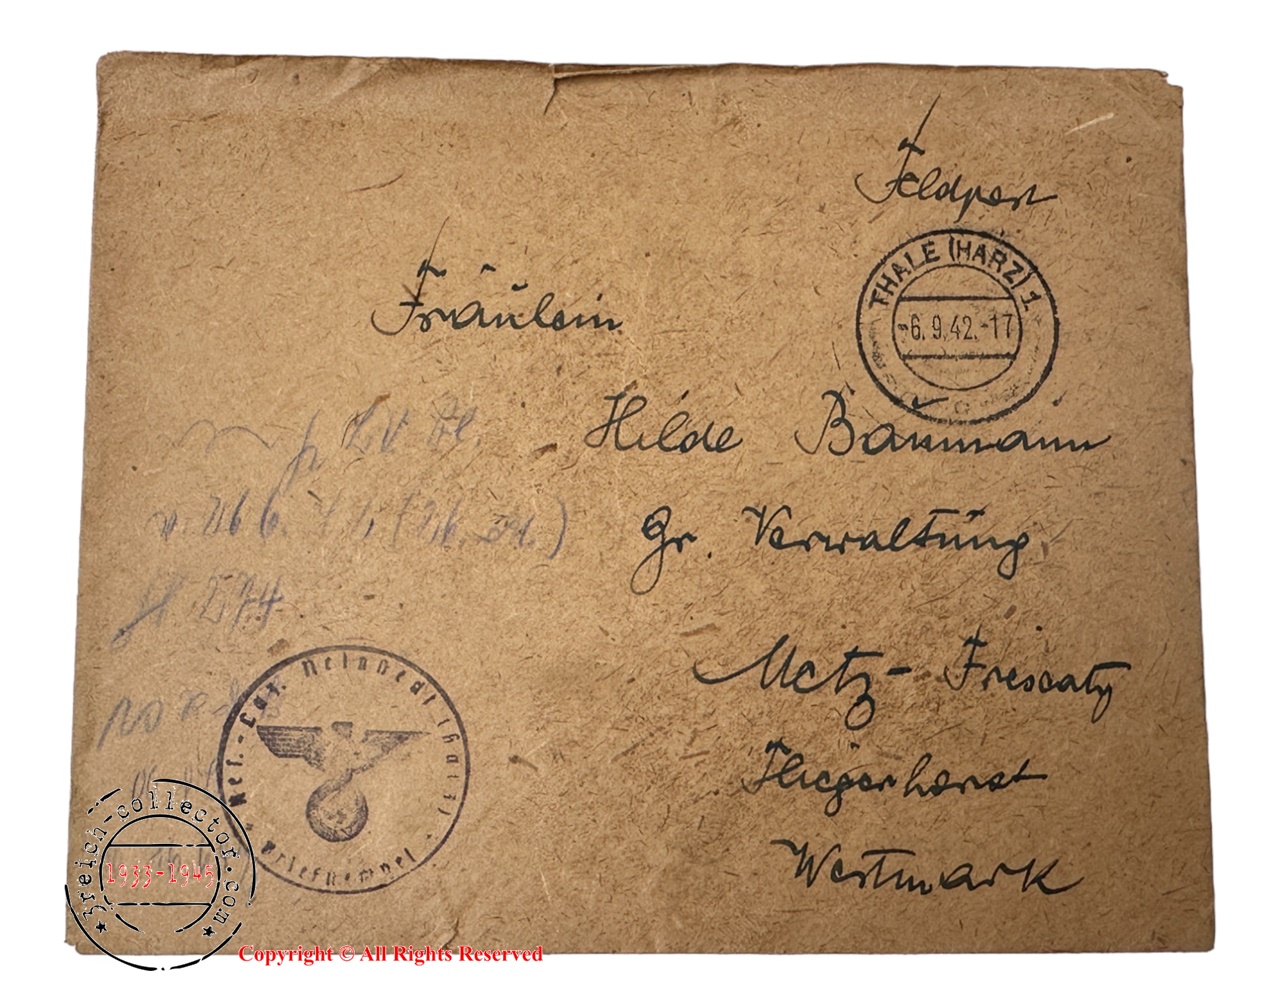 Feldpost
THALE (HARZ) 1
-6.9.42.-17
c
Fräulein
Hilde Baumann
Gr. Verwaltung
Metz-Frescaty
Fliegerhorst
Westmark
Res.-Laz. Neinstedt (Harz)
Briefstempel
3reich-collector.com
1933-1945
Copyright © All Rights Reserved